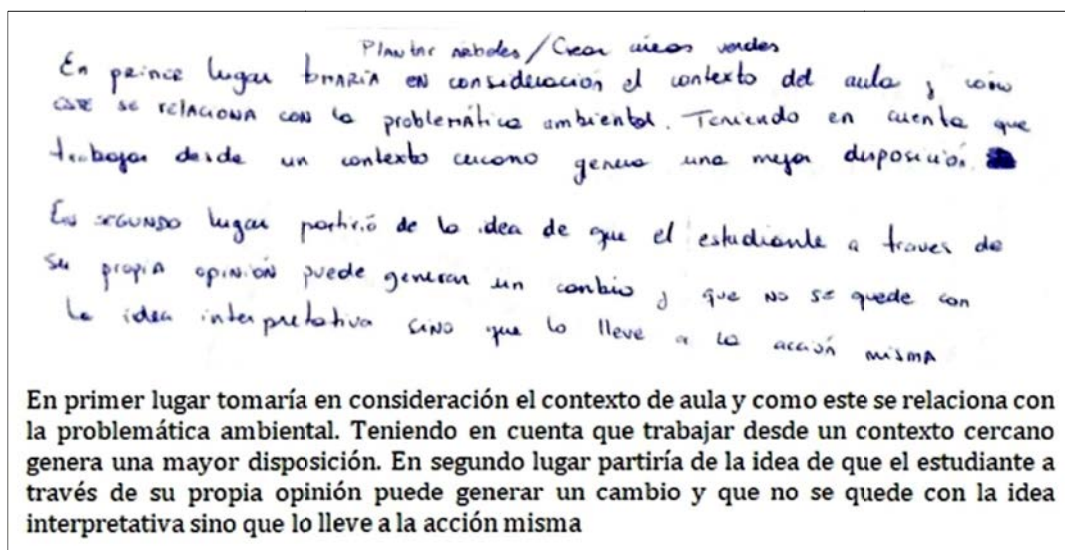 Plantar arboles / Crear areas verdes
En primer lugar tomaría en consideración el contexto del aula y como
este se relaciona con la problemática ambiental. Teniendo en cuenta que
trabajar desde un contexto cercano genera una mejor disposición.
En segundo lugar partirió de la idea de que el estudiante a traves de
su propia opinión puede generar un cambio y que no se quede con
la idea interpretativa sino que lo lleve a la acción misma
En primer lugar tomaría en consideración el contexto de aula y como este se relaciona con
la problemática ambiental. Teniendo en cuenta que trabajar desde un contexto cercano
genera una mayor disposición. En segundo lugar partiría de la idea de que el estudiante a
través de su propia opinión puede generar un cambio y que no se quede con la idea
interpretativa sino que lo lleve a la acción misma